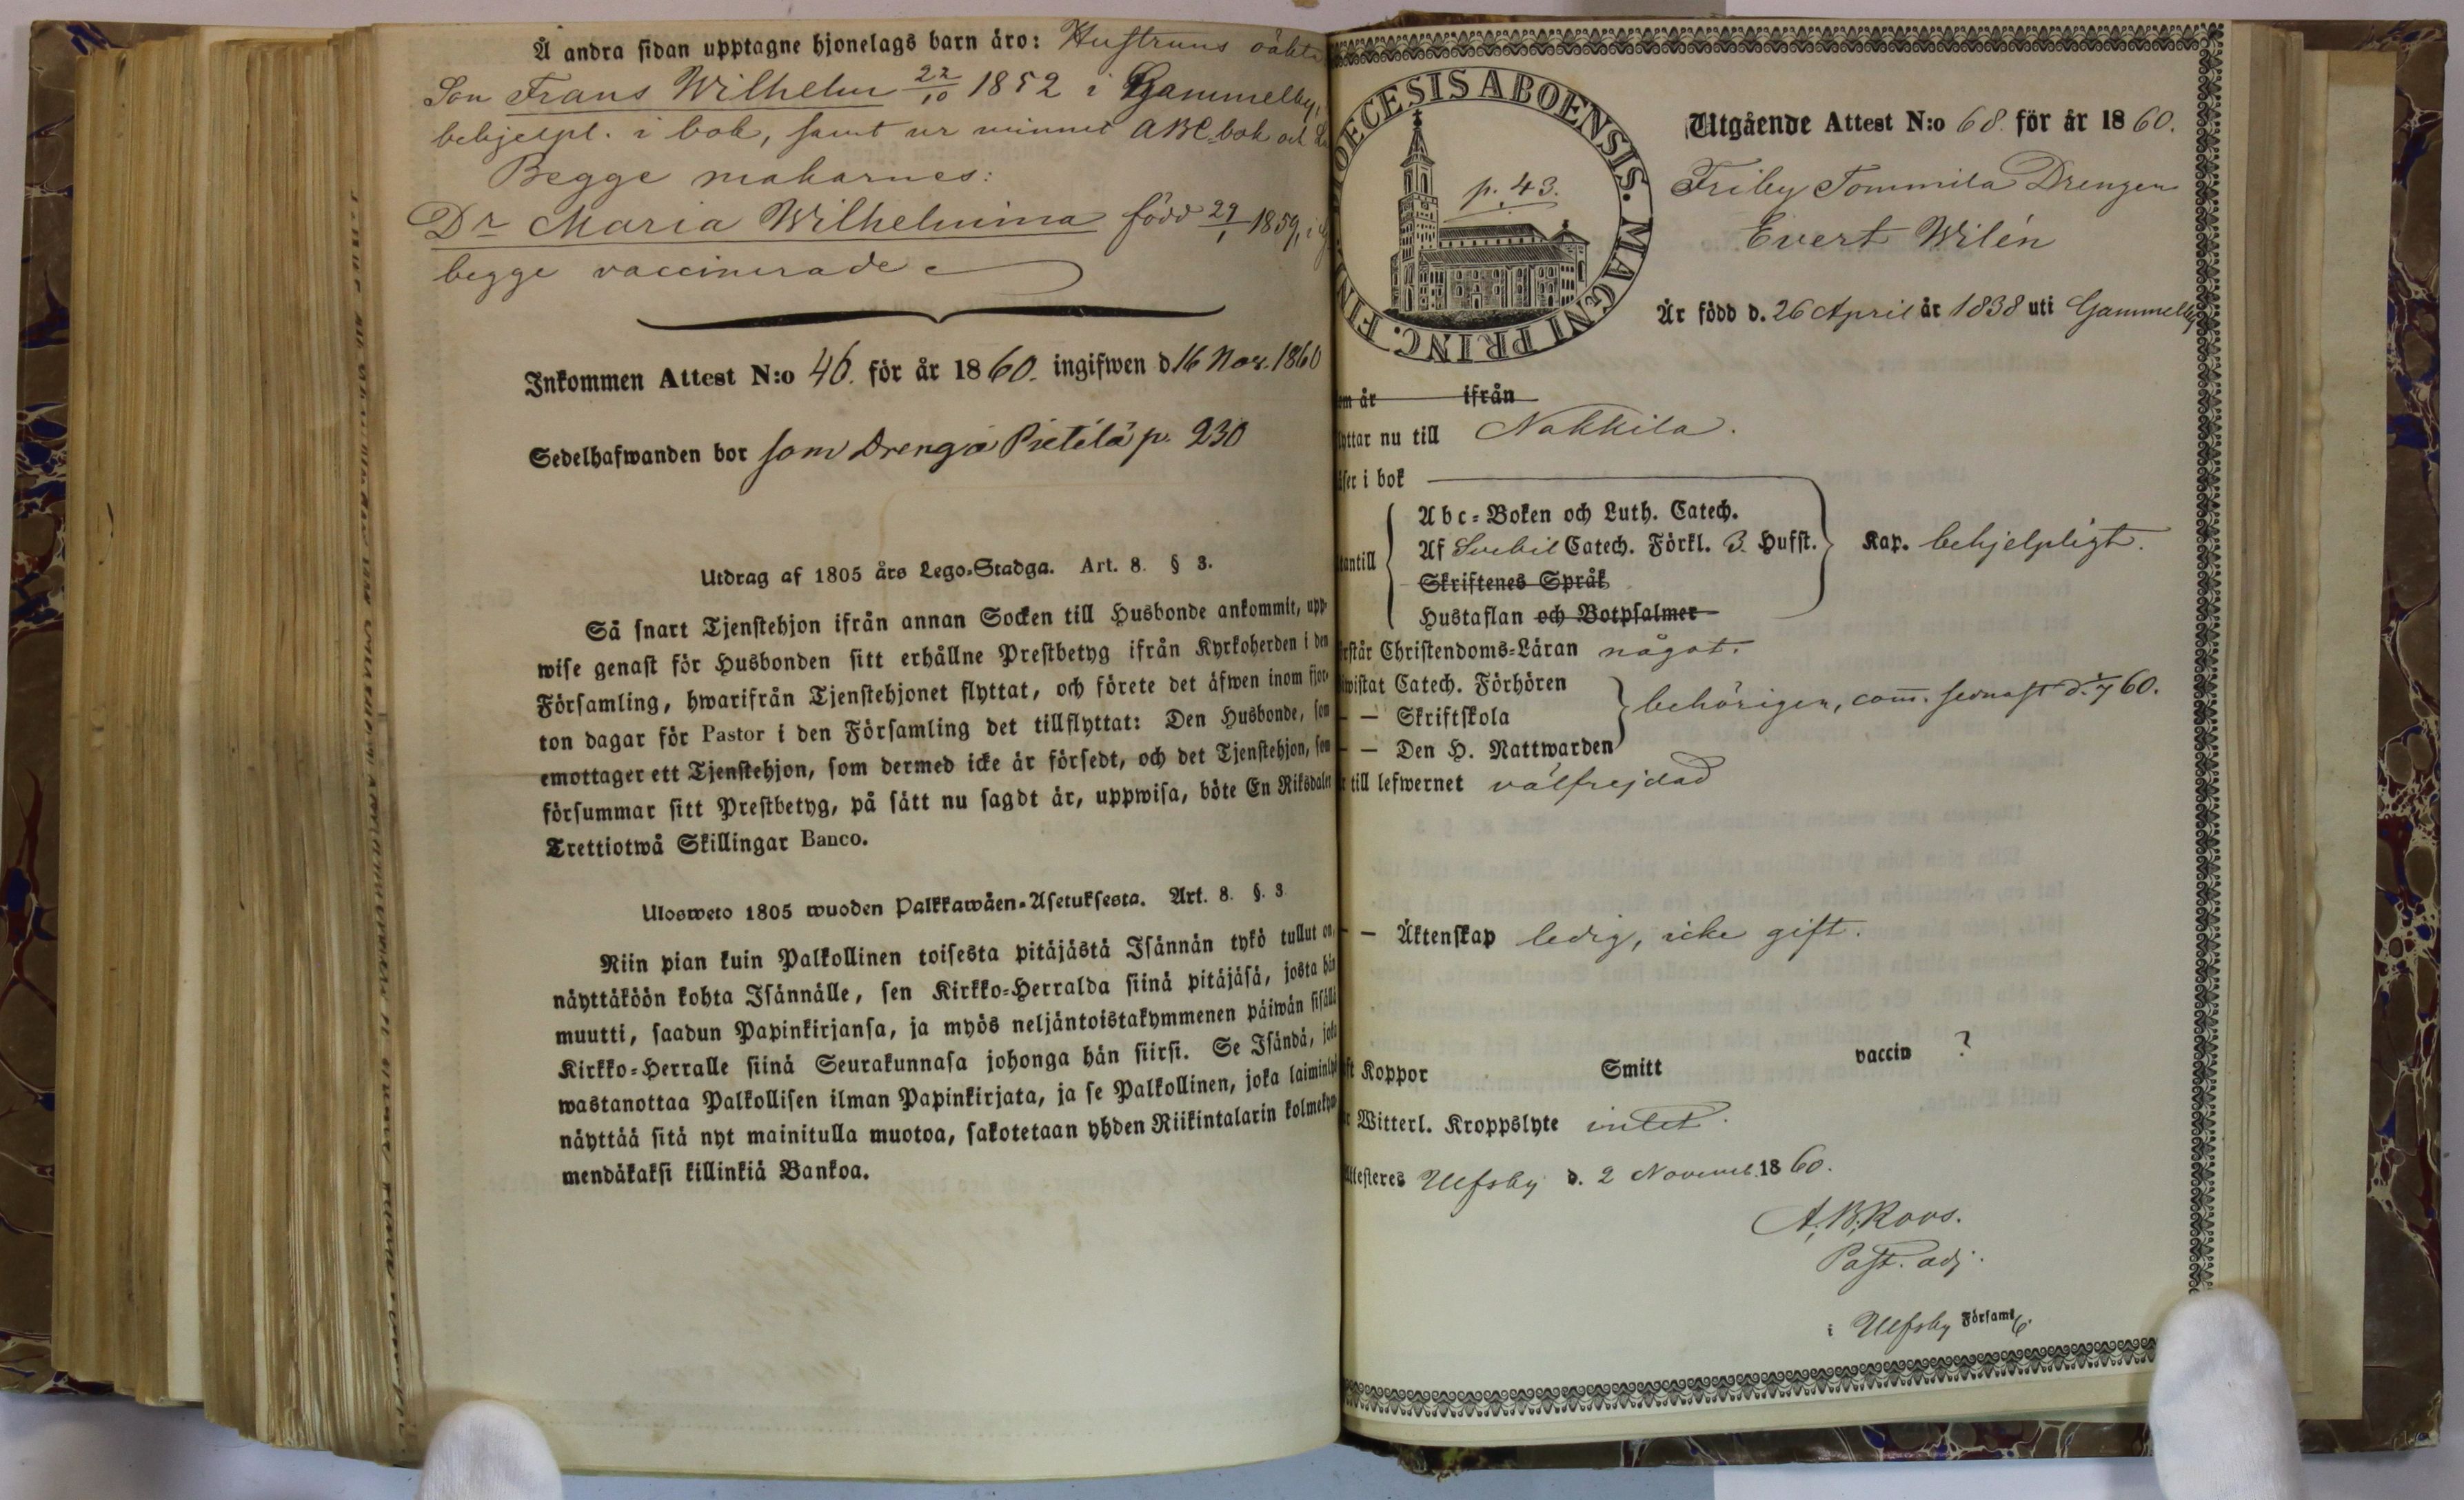 Å andra sidan upptagne hjonelags barn äro: Hustruns oäkta
Son Frans Wilhelm 22/10 1852 i Gammelby,
behjelpl. i bok, samt ur minnet ABC-bok och
Begge makarnes:
Dr Maria Wilhelmina född 29/1 1859, i
begge vaccinerade
Inkommen Attest N:o 46. för år 1860. ingifwen d 16 Nov. 1860
Sedelhafwanden bor som Dreng å Pietilä p. 230
Utdrag af 1805 års Lego-Stadga. Art. 8. § 3.
Så snart Tjenstehjon ifrån annan Socken till Husbonde ankommit, upp-
wise genast för Husbonden sitt erhållne Prestbetyg ifrån Kyrkoherden i den
Församling, hwarifrån Tjenstehjonet flyttat, och förete det äfwen inom fjor-
ton dagar för Pastor i den Församling det tillflyttat: Den Husbonde, som
emottager ett Tjenstehjon, som dermed icke är försedt, och det Tjenstehjon, som
försummar sitt Prestbetyg, på sätt nu sagdt är, uppwisa, böte En Riksdaler
Trettiotwå Skillingar Banco.
Ulosweto 1805 wuoden Palkkawäen-Asetuksesta. Art. 8. §. 3
Niin pian kuin Palkollinen toisesta pitäjästä Isännän tykö tullut on,
näyttäköön kohta Isännälle, sen Kirkko-Herralda siinä pitäjäsä, josta hän
muutti, saadun Papinkirjansa, ja myös neljäntoistakymmenen päiwän sisällä
Kirkko-Herralle siinä Seurakunnasa johonga hän siirsi. Se Isändä, joka
wastanottaa Palkollisen ilman Papinkirjata, ja se Palkollinen, joka laiminlyö
näyttää sitä nyt mainitulla muotoa, sakotetaan yhden Riikintalarin kolmekym-
mendäkaksi killinkiä Bankoa.
DIOECESIS ABOENSIS. MAGNI PRINC. FIN
p. 43.
Utgående Attest N:o 68. för år 1860.
Friby Tommila Drengen
Evert Wilén
Är född d. 26 April år 1838 uti Gammelby
om år ifrån
yttar nu till Nakkila.
äser i bok
Abc-Boken och Luth. Catech.
Af Svebil Catech. Förkl. 3. Hufst. Kap. behjelpligt.
antill
Skriftenes Språk
Hustaflan och Botpsalmer
rstår Christendoms-Läran något.
wistat Catech. Förhören
— — Skriftskola behörigen, com. sednast d. 1/7 60.
— — Den H. Nattwarden
r till lefwernet välfrejdad
— — Äktenskap ledig, icke gift.
ft Koppor Smitt vaccin ?
r Witterl. Kroppslyte intet.
Attesteres Ulfsby d. 2 Novemb. 1860.
A. B. Roos.
Past. adj.
i Ulfsby Församl.